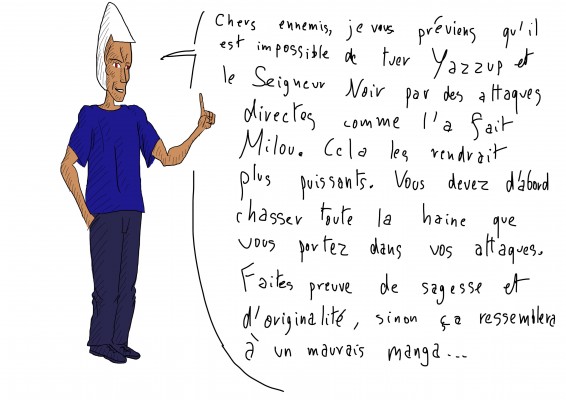 Chers ennemis, je vous préviens qu'il
est impossible de tuer Yazzup et
le Seigneur Noir par des attaques
directes comme l'a fait
Milou. Cela les rendrait
plus puissants. Vous devez d'abord
chasser toute la haine que
vous portez dans vos attaques.
Faites preuve de sagesse et
d'originalité, sinon ça ressemblera
à un mauvais manga...